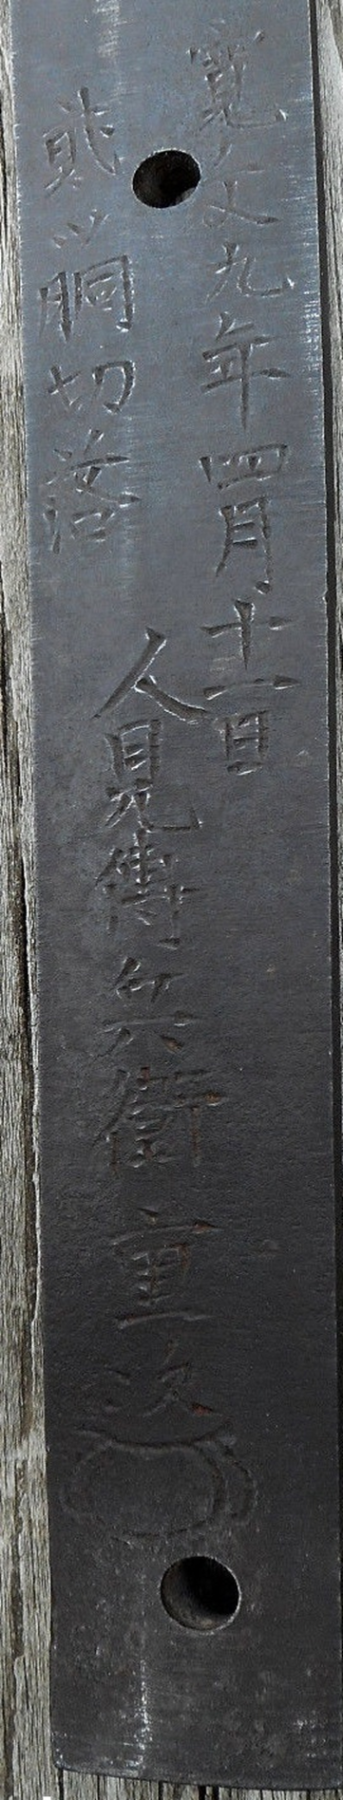 寛文九年四月十一日
貳ツ胴切落
人見傳兵衛重次